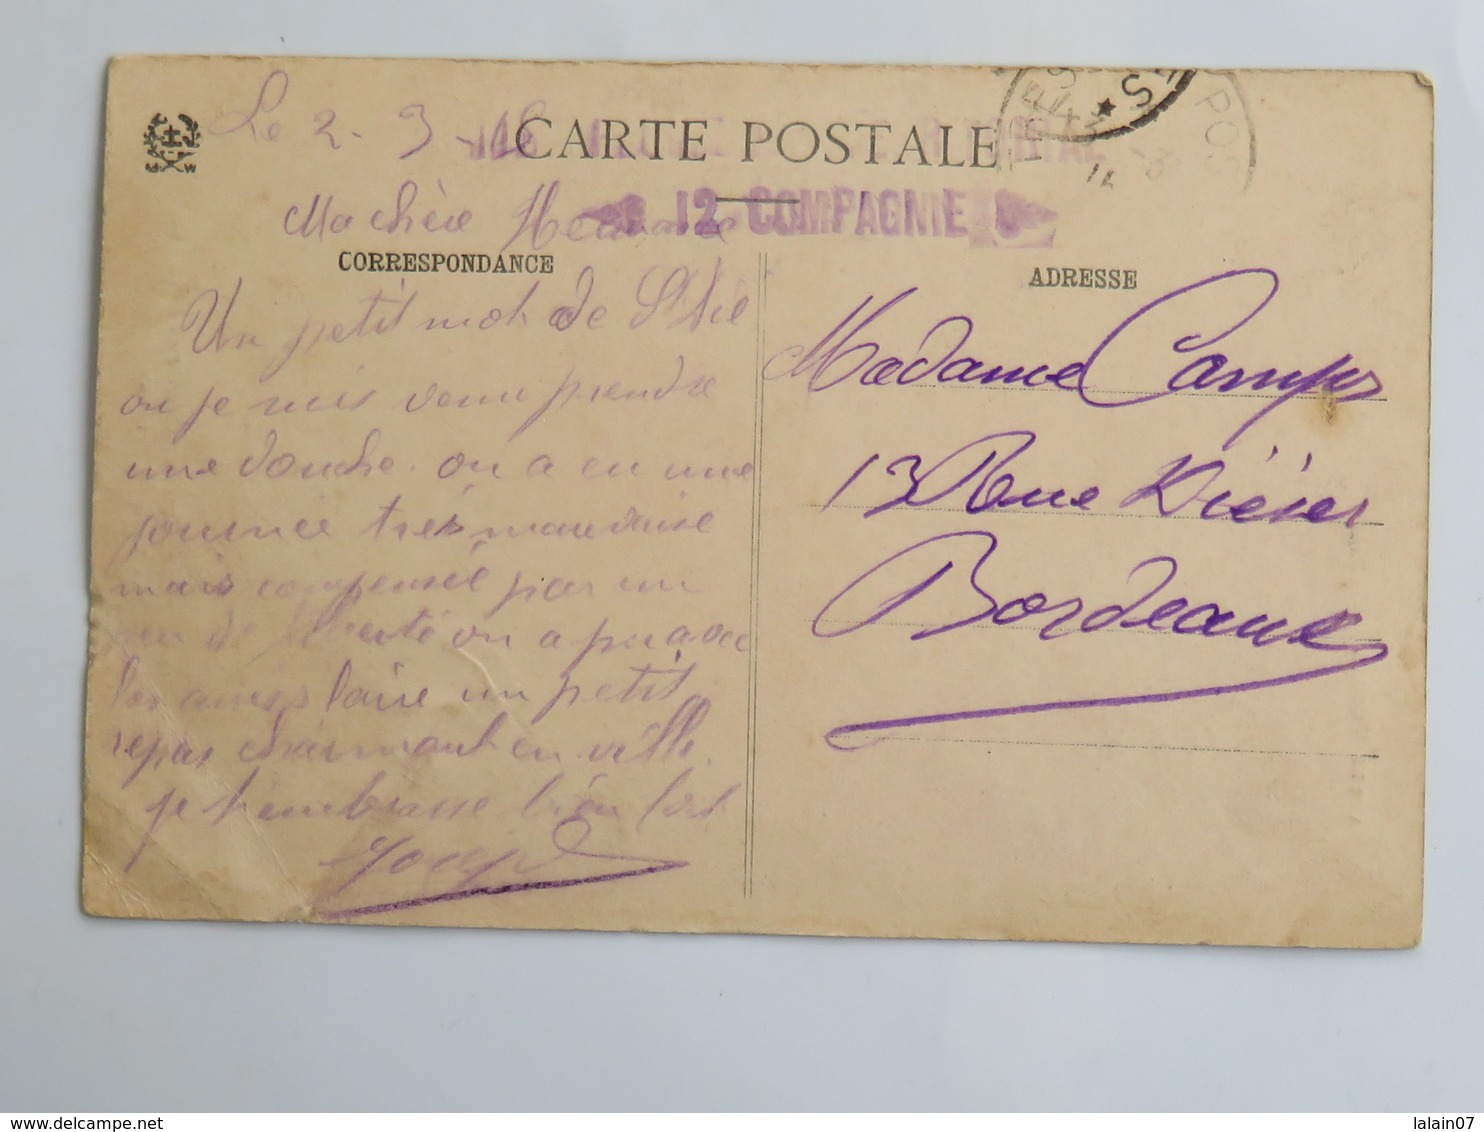 Le 2-3-16
CARTE POSTALE
TERRITORIAL
12 COMPAGNIE
POS
Ma chère
CORRESPONDANCE
Un petit mot de St Dié
ou je suis venu prendre
une douche. on a eu une
journée très mauvaise
mais compensée par un
peu de liberté on a pu avec
les amis faire un petit
repas charmant en ville.
je t'embrasse bien fort
Joseph
ADRESSE
Madame Camps
13 Rue
Bordeaux
delcampe.net
lalain07